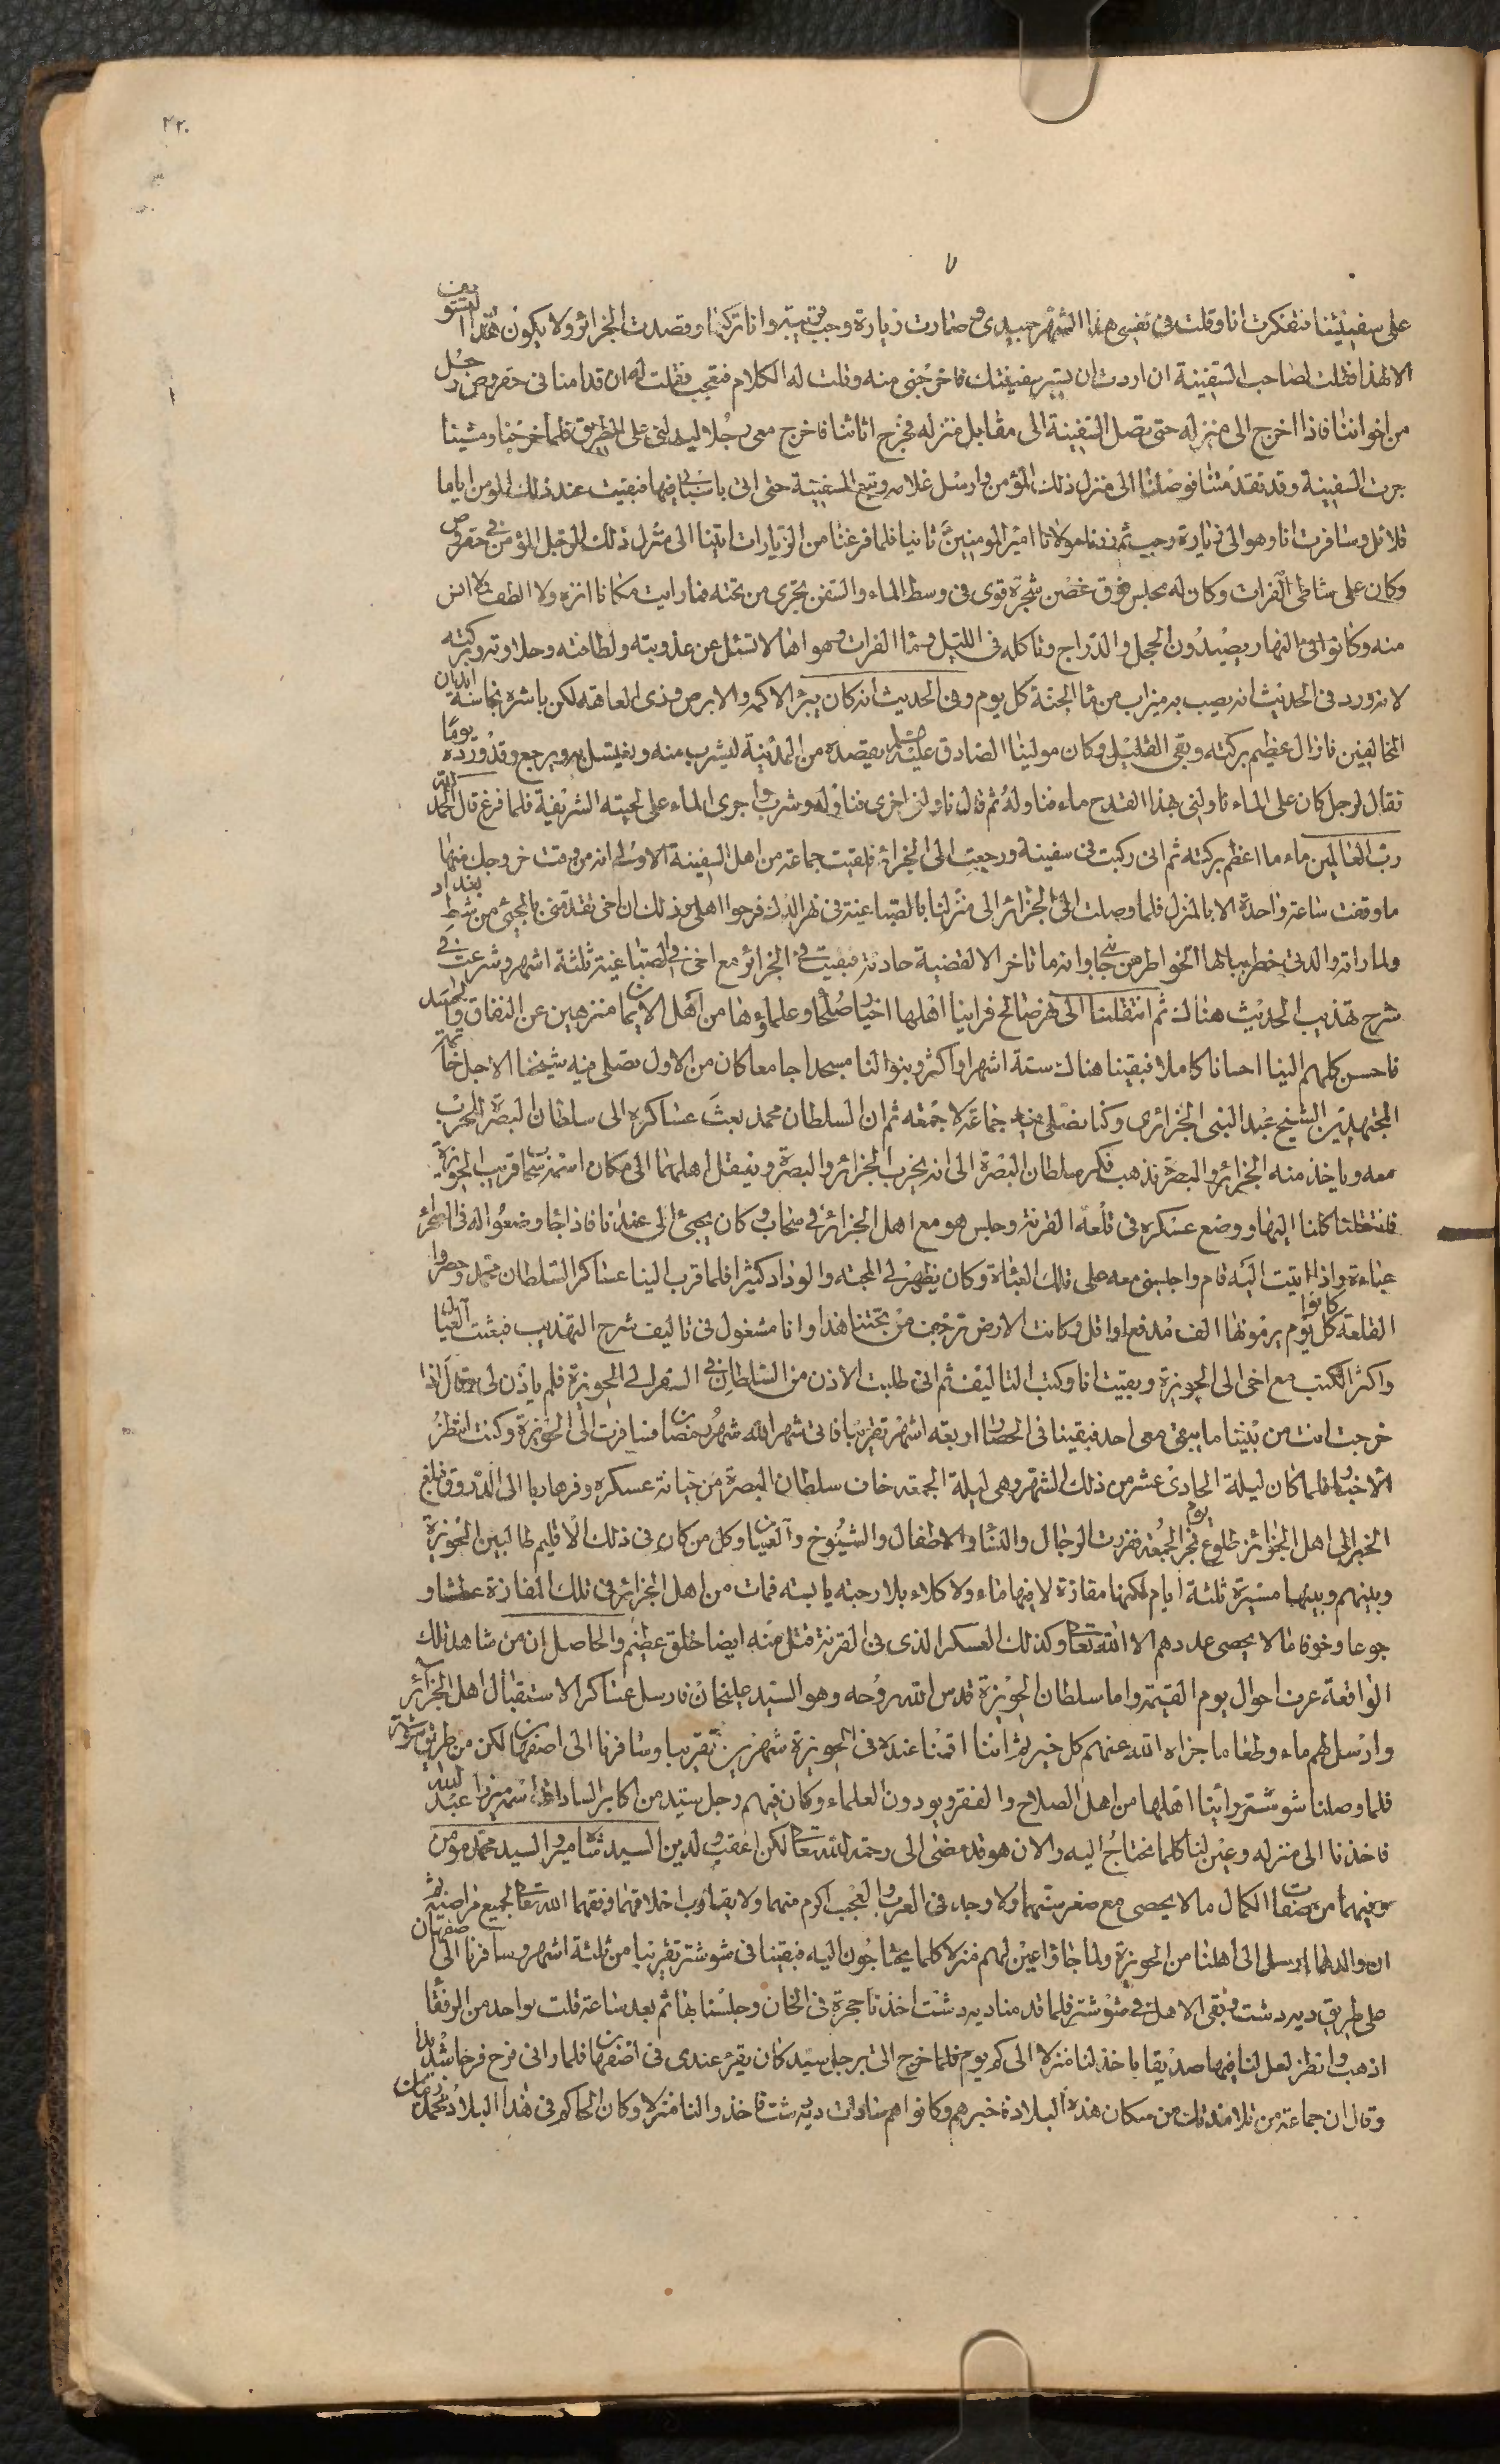 ٣٢٠
٧
على سفينتنا فتفكرت انا وقلت في نفسي هذا الشهر جيدي وصارت زيارة رجب قريبة وانا تركتها وقصدت الجزائر ولا يكون هذا التشويق
الا لهذا فقلت لصاحب السفينة ان اردت ان تسير سفينتك فاخرجني منه وقلت له الكلام فتعجب فقلت له ان قدامنا في حقروص رجل
من اخواننا فاذا اخرج الى منزله حتى تصل السفينة الى مقابل منزله فخرج اثاثنا فاخرج معي رجلا ليدلني على الطريق فلما خرجنا ومشينا
جرت السفينة وقد تقدمتنا فوصلنا الى منزل ذلك المؤمن وارسل غلامه وتبع السفينة حتى اتى باسبابي فيها فبقيت عند ذلك المؤمن اياما
قلائل وسافرت انا وهو الى زيارة رجب ثم زرنا مولانا امير المومنين ثانيا فلما فرغنا من الزيارات اتينا الى منزل ذلك الرجل المؤمن في حقروص
وكان على شاطى الفرات وكان له مجلس فوق غصن شجرة قوى في وسط الماء والسفن تجرى من تحته فما رايت مكانا انزه ولا الطف ولا انس
منه وكانوا في النهار يصيدون الحجل والدراج وناكله في الليل وماء الفرات وهواها لا تسئل عن عذوبته ولطافته وحلاوته وبركته
لانه ورد في الحديث انه يصب به ميزاب من ماء الجنة كل يوم وفي الحديث انه كان يبرء الاكمه والابرص وذى العاهة لكن باشره نجاسة ابدان
المخالفين فازال عظيم بركته وبقى القليل وكان مولينا الصادق عليه السلام يقصده من المدينة ليشرب منه ويغتسل به ويرجع وقد ورده يوما
فقال لرجل كان على الماء ناولني بهذا القدح ماء فناوله ثم قال ناولني اخرى فناوله وشرب واجرى الماء على لحيته الشريفة فلما فرغ قال الحمد لله
رب العالمين ماء ما اعظم بركته ثم اني ركبت في سفينة ورجعت الى الجزائر فلقيت جماعة من اهل السفينة الاولى انه من وقت خروجك منها
ما وقفت ساعة واحدة الا بالمنزل فلما وصلت الى الجزائر الى منزلنا بالصباغية في نهر المدك فرحوا اهلي وذلك ان اخي تقدمني بالمجيء من شط بغداد
ولما راته والدتي خطر ببالها الخواطر من جا وانه ما تاخر الا لقضية حادثة فبقيت في الجزائر مع اخي في الصباغية ثلثة اشهر وشرعت في
شرح تهذيب الحديث هناك ثم انتقلنا الى نهر صالح فراينا اهلها اخيار صلحا وعلماؤها من اهل الايمان منزهين عن النفاق والحسد
فاحسن كلهم الينا احسانا كاملا فبقينا هناك ستة اشهر او اكثر وبنوا لنا مسجدا جامعا كان من الاول يصلى فيه شيخنا الاجل خاتمة
المجتهدين الشيخ عبد النبى الجزائرى وكنا نصلى فيه جماعة لا جمعة ثم ان السلطان محمد بعث عساكره الى سلطان البصرة للحرب
معه وياخذ منه الجزائر والبصرة فذهب فكر سلطان البصرة الى انه يخرب الجزائر والبصرة وينقل اهلها الى مكان اسمه سحاب قريب الحويزة
فانتقلنا كلنا اليها ووضع عسكره في قلعة القرنة وجلس هو مع اهل الجزائر في سحاب وكان يجيئ الى عندنا فاذا جاء وضعوا له في الصحراء
عباءة واذا اتيت اليه قام واجلسني معه على تلك العباءة وكان يظهر لي المحبة والوداد كثيرا فلما قرب الينا عساكر السلطان محمد وحصروا
القلعة كانوا كل يوم يرمونها الف مدفع او اقل وكانت الارض ترجف من تحتنا هذا وانا مشغول في تاليف شرح التهذيب فبعثت العيال
واكثر الكتب مع اخى الى الحويزة وبقيت انا وكتب التاليف ثم اني طلبت الاذن من السلطان في السفر الى الحويزة فلم ياذن لي وقال اذا
خرجت انت من بيننا ما يبقى معي احد فبقينا في الحصار اربعة اشهر تقريبا فاتى شهر الله شهر رمضان فسافرت الى الحويزة وكنت انتظر
الاخبار فلما كان ليلة الحادى عشر من ذلك الشهر وهى ليلة الجمعة خاف سلطان البصرة من خيانة عسكره وفر هاربا الى الدورق فبلغ
الخبر الى اهل الجزائر طلوع فجر يوم الجمعة ففزت الرجال والنساء والاطفال والشيوخ والعميان وكل من كان في ذلك الاقليم طالبين الحويزة
وبينهم وبينها مسيرة ثلثة ايام لكنها مفازة لا فيها ماء ولا كلاء بلا رحبة يابسة فمات من اهل الجزائر في تلك المفازة عطشا و
جوعا وخوفا ما لا يحصى عددهم الا الله تعالى وكذلك العسكر الذى في القرنة قتل منه ايضا خلق عظيم والحاصل ان من شاهد تلك
الواقعة عرف احوال يوم القيمة واما سلطان الحويزة قدس الله روحه وهو السيد عليخان فارسل عساكر الاستقبال اهل الجزائر
وارسل لهم ماء وطعاما جزاه الله عنهم كل خير ثم اننا اقمنا عنده في الحويزة شهرين تقريبا وسافرنا الى اصفهان لكن من طريق شوشتر
فلما وصلنا شوشتر راينا اهلها من اهل الصلاح والفقر ويودون العلماء وكان فيهم رجل سيد من اكابر السادات اسمه ميرزا عبد الله
فاخذنا الى منزله وعين لنا كلما نحتاج اليه والان هو قد مضى الى رحمة الله تعالى لكن اعقب ولدين السيد شاه مير والسيد محمد مومن
وفيهما من صفات الكمال ما لا يحصى مع صغر سنهما ولا وجد في العرب والعجم اكرم منهما ولا يقارب اخلاقهما وفقهما الله تعالى لجميع مراضيه ثم
ان والدهما ارسل الى اهلنا من الحويزة ولما جاؤا عين لهم منزلا كلما يحتاجون اليه فبقينا في شوشتر تقريبا من ثلثة اشهر وسافرنا الى اصفهان
على طريق ديه دشت وبقى الاهل في شوشتر فلما قدمنا ديه دشت اخذنا حجرة في الخان وجلسنا بها ثم بعد ساعة قلت لواحد من الرفقاء
اذهب وانظر لعل لنا فيها صديقا ياخذ لنا منزلا الى كم يوم فلما خرج اتى برجل سيد كان يقرء عندى في اصفهان فلما راني فرح فرحا شديدا
وقال ان جماعة من تلامذتك من سكان هذه البلاد فاخبرهم وكانوا هم سادات ديه دشت فاخذوا لنا منزلا وكان الحاكم في هذا البلاد محمد زمان